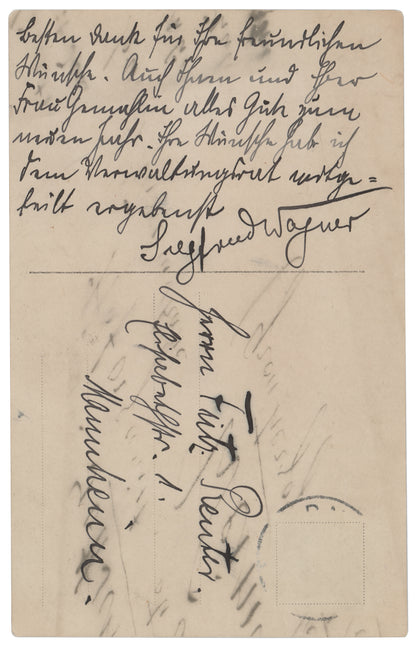 Besten Dank für Ihre freundlichen
Wünsche. Auch Ihnen und Ihrer
Frau Gemahlin alles Gute zum
neuen Jahr. Ihre Wünsche hab ich
dem Verwaltungsrat mitge=
teilt ergebenst
Siegfried Wagner
Herrn Fritz Reuter.
str. 1.
Mannheim.